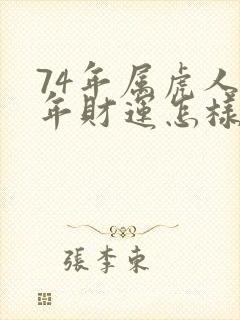 74年属虎人
年财運怎樣
張李東